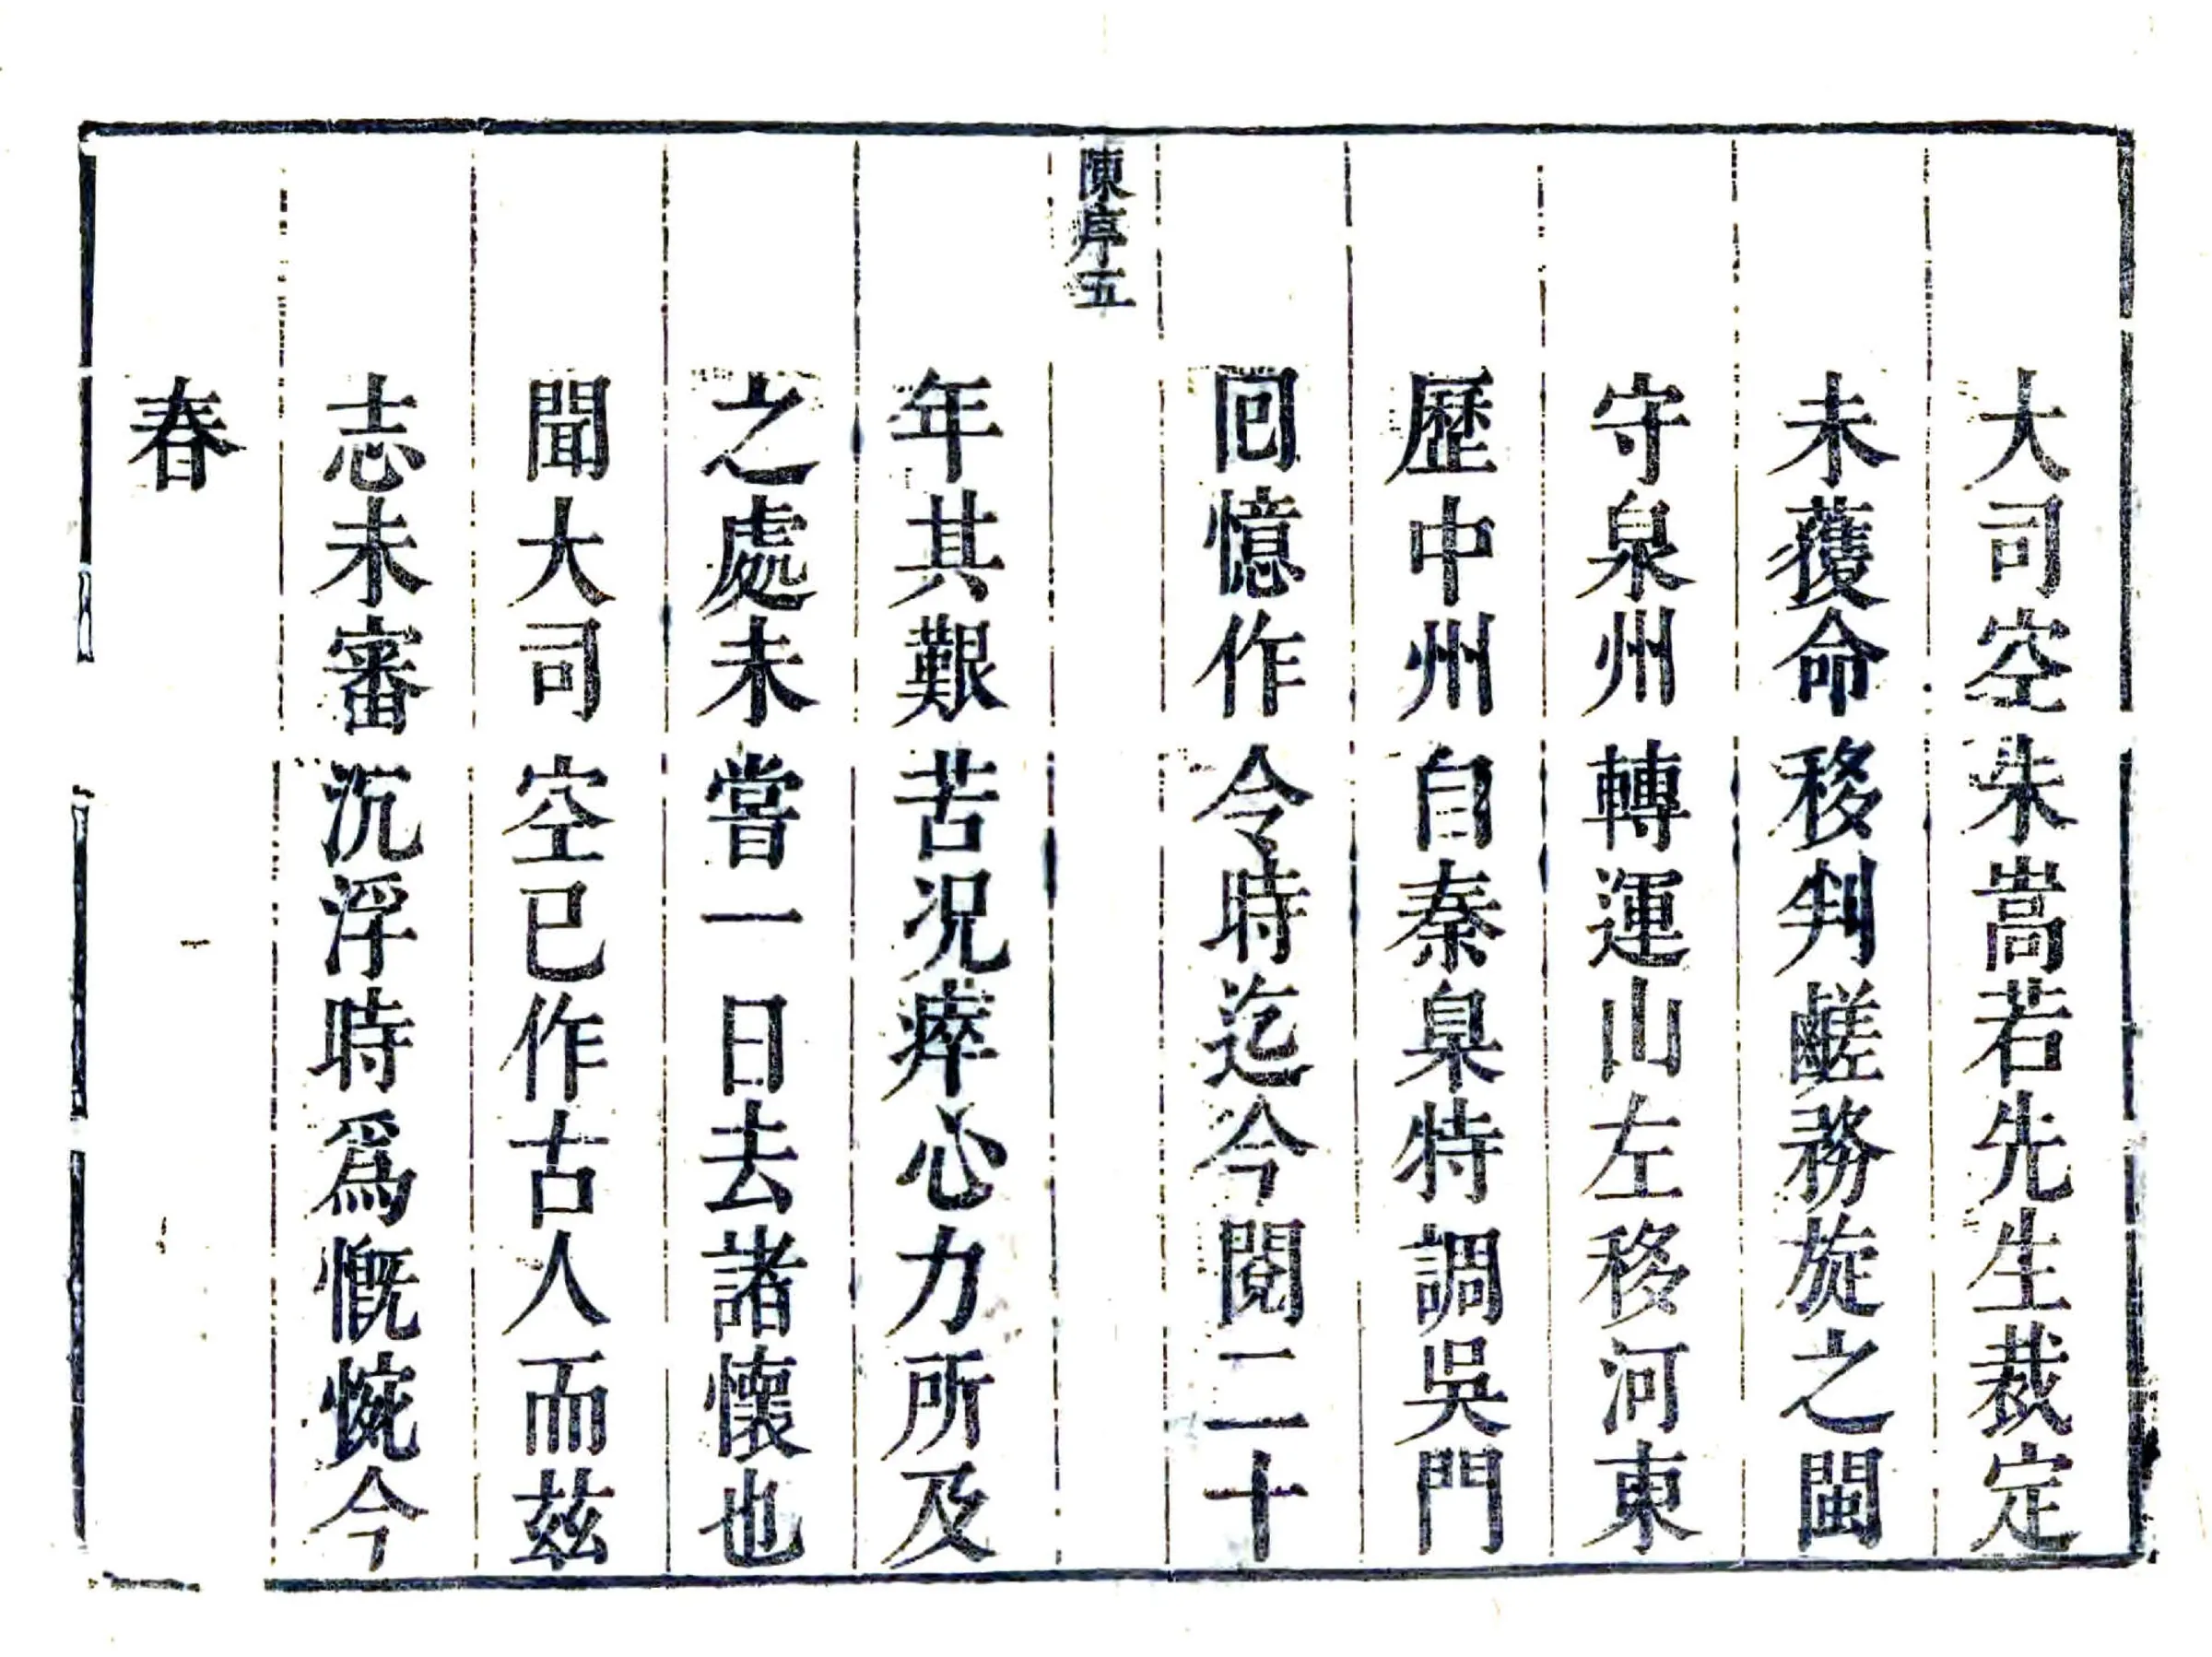 大司空朱嵩若先生裁定
未獲命移判鹺務旋之閩
守泉州轉運山左移河東
歷中州自秦臬特調吳門
囘憶作令時迄今閱二十
陳序五
年其艱苦况瘁心力所及
之處未嘗一日去諸懷也
聞大司空已作古人而茲
志未審沉浮時爲慨惋今
春